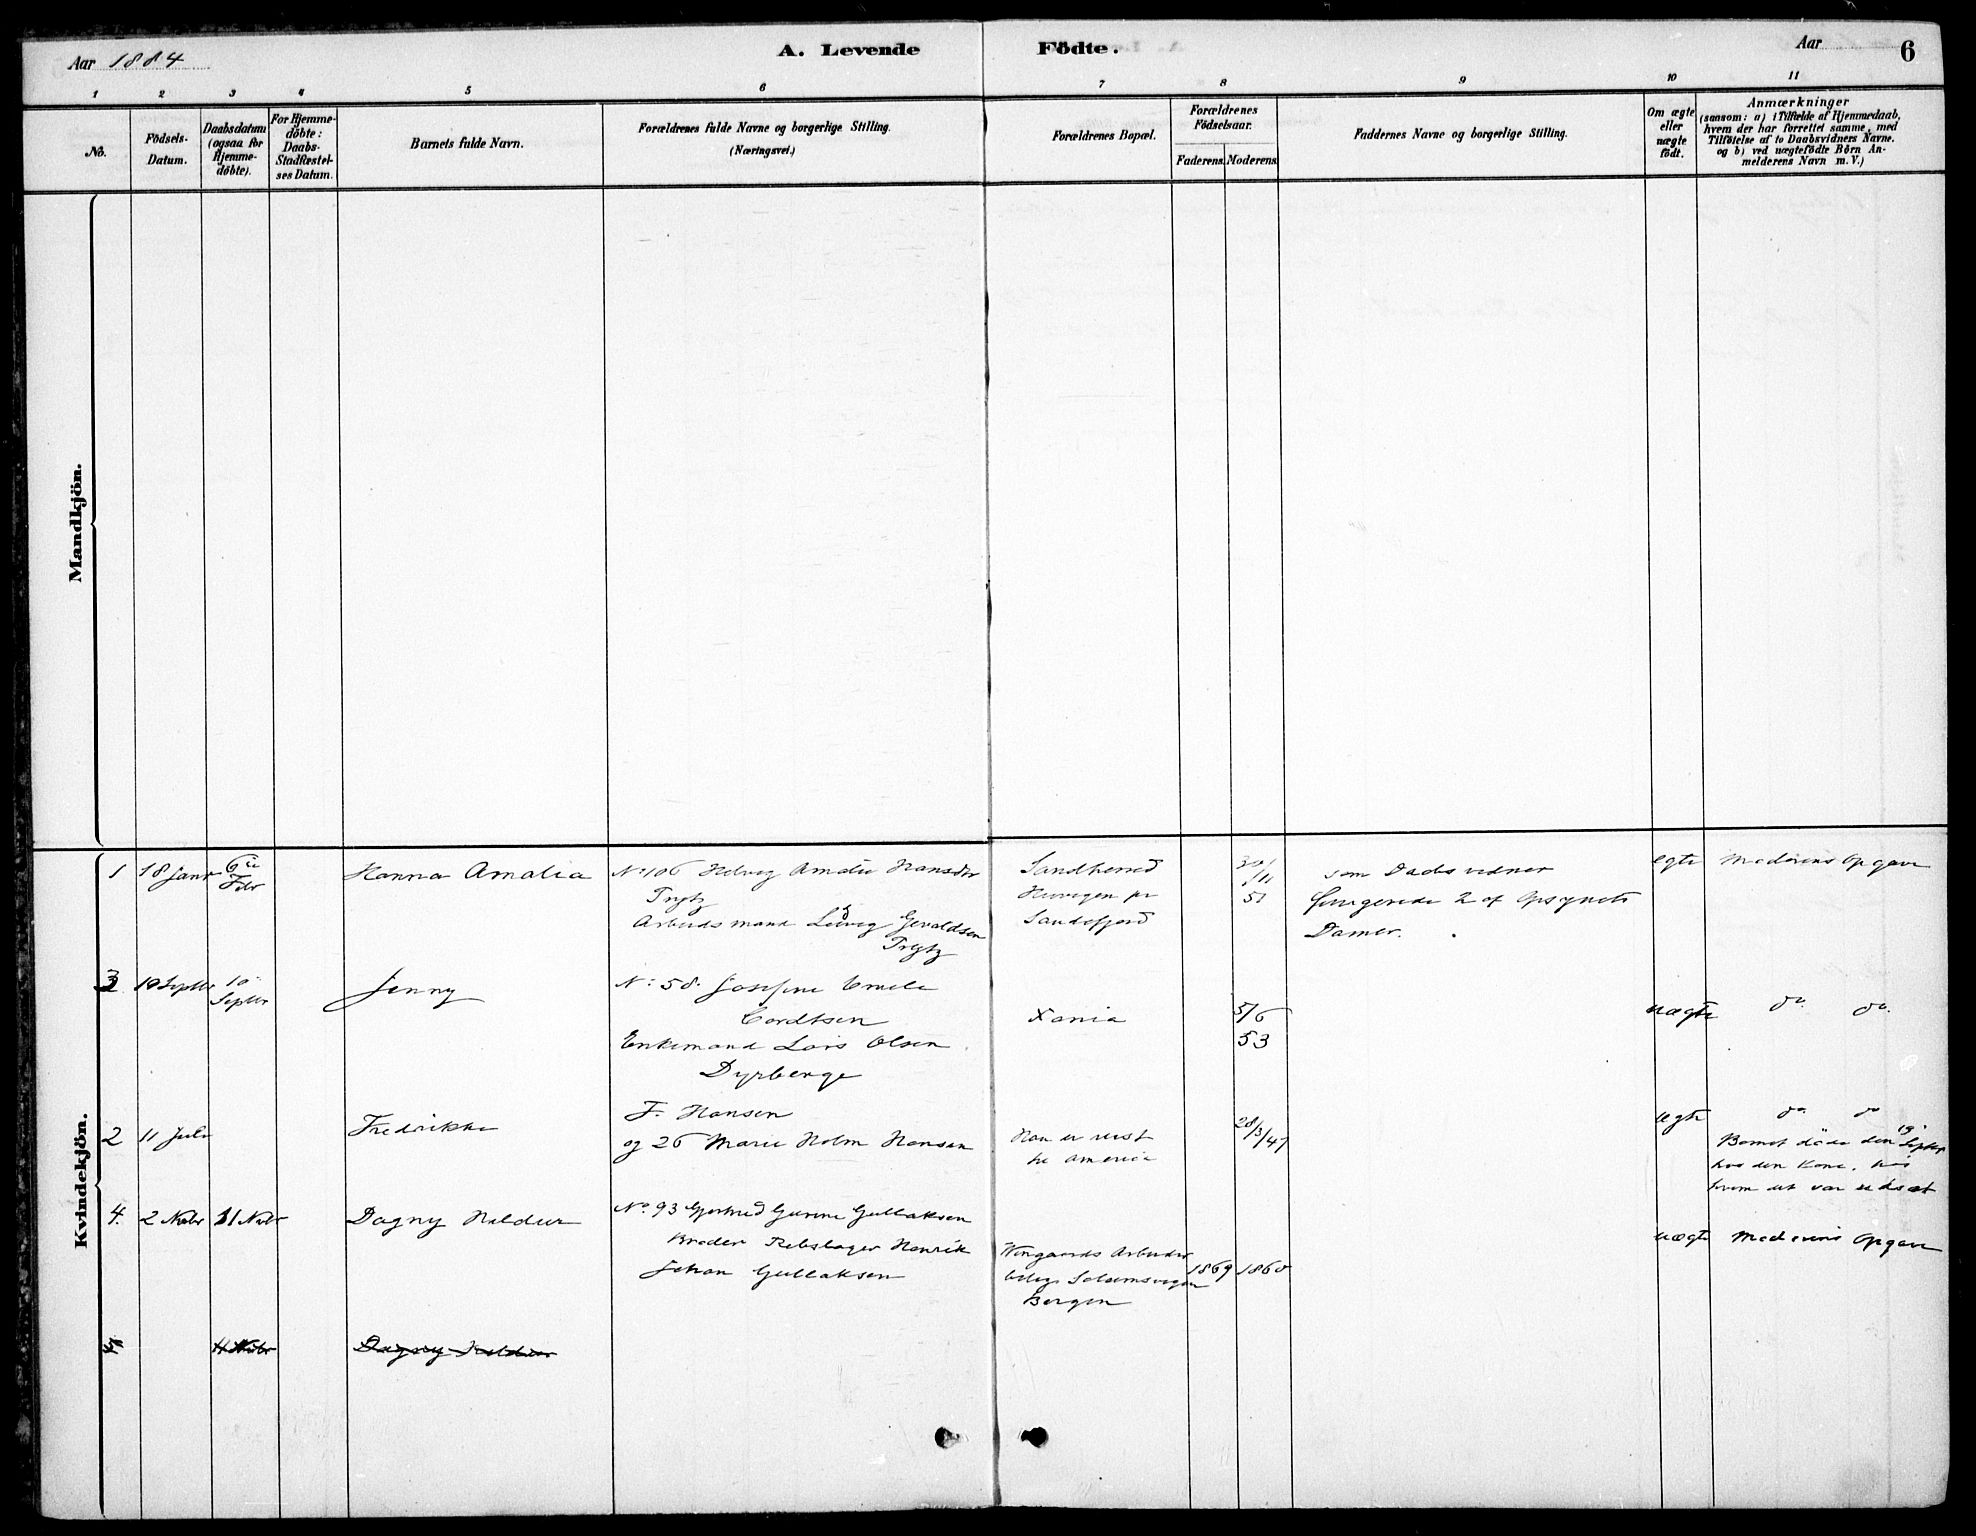 Aar 1884
A. Levende Födte.
Aar
6
1 2 3 4 5 6 7 8 9 10 11
No.
Födsels-
Datum.
Daabsdatum
(ogsaa for
Hjemme-
döbte).
For Hjemme-
döbte:
Daabs-
Stadfæstel-
ses Datum.
Barnets fulde Navn.
Forældrenes fulde Navne og borgerlige Stilling.
(Næringsvei.)
Forældrenes Bopæl.
Forældrenes
Födselsaar.
Faderens. Moderens.
Faddernes Navne og borgerlige Stilling.
Om ægte
eller
uægte
födt.
Anmærkninger
(saasom: a) i Tilfælde af Hjemmedaab,
hvem der har forrettet samme, med
Tilföielse af to Daabsvidners Navne.
og b) ved uægtefödte Börn An-
melderens Navn m. V.)
Mandkjön.
Kvindekjön.
1 18 Janr 6te
Febr
Hanna Amalia
No 106 Helvig Amalie Hansdr
Trytz
Arbeidsmand Ludvig Gevaldsen
Trytz
Sandherred
pr
Sandefjord
51
som Daabsvidner
fungerede 2 af Opsynets
Damer.
egte
Moderens Opgave
3 10 Septbr 10
Septbr
Jenny
No 58. Josefine Emelie
Cordtsen
Enkemand Lars Olsen
Dyrberge
Xania
5/6
53
uægte
do. do.
2 11 Juli
Fredrikke
F. Hansen
og 26 Marie Holm Hansen
Han er reist
til America
28/3/47
egte
do do
Barnet döde den 19 Septbr
hos den Kone, hos
hvem det var udsat
4. 2 Novbr 11 Novbr
Dagny Hildur
No. 93 Gjertrud Gurine Gullaksen
Broder Rebslager Henrik
Johan Gullaksen
Arbeider
Solheimsvigen
Bergen
1869 1860
uægte
Moderens Opgave
4 11 Novbr
Dagny Hildur